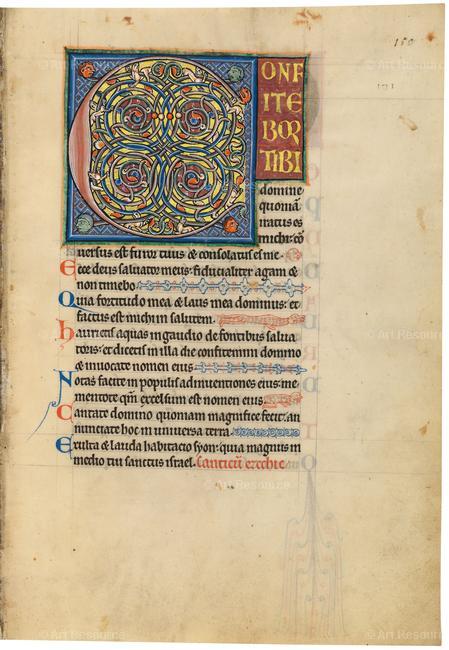 150
171
C ONF
ITE
BOR
TIBI
domine
quoniā
iratus es
michi: cō
uersus est furor tuus & consolatus es me.
Ecce deus saluator meus: fiducialiter agam &
non timebo
Quia fortitudo mea & laus mea dominus: et
factus est michi in salutem.
haurietis aquas in gaudio de fontibus salua
toris: et dicetis in illa die confitemini domino
& inuocate nomen eius
Notas facite in populis adinuentiones eius: me
mentote qm̄ excelsum est nomen eius.
Cantate domino quoniam magnifice fecit: an
nunciate hoc in uniuersa terra.
Exulta & lauda habitacio syon: quia magnus in
medio tui sanctus israel. Canticū ezechie
© Art Resource